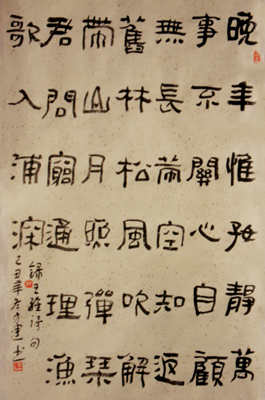 晚年惟好靜萬
事不關心自顧
無長策空知返
舊林松風吹解
帶山月照彈琴
君問窮通理漁
歌入浦深
錄王維詩句
己丑年建书